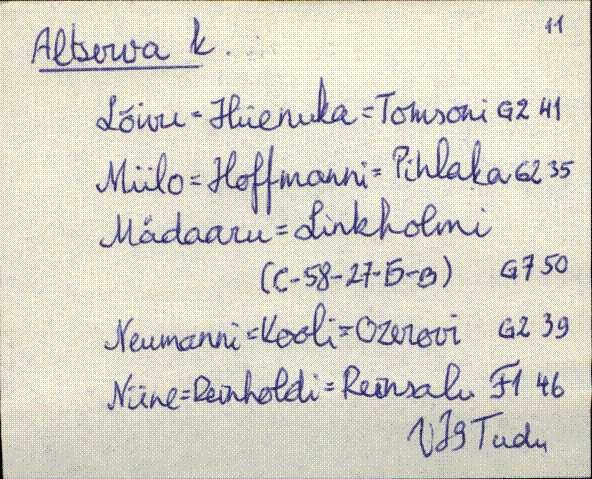 11
Altserva k.
Lõivu = Hüenuka = Tomsoni G2 41
Müilo = Hoffmanni = Pihlaka G2 35
Mädaaru = Linkholmi
(C-58-27-Б-в) G7 50
Neumanni = Kooli = Ozerovi G2 39
Niine = Reinholdi = Reinsalu F1 46
VJg Tudu